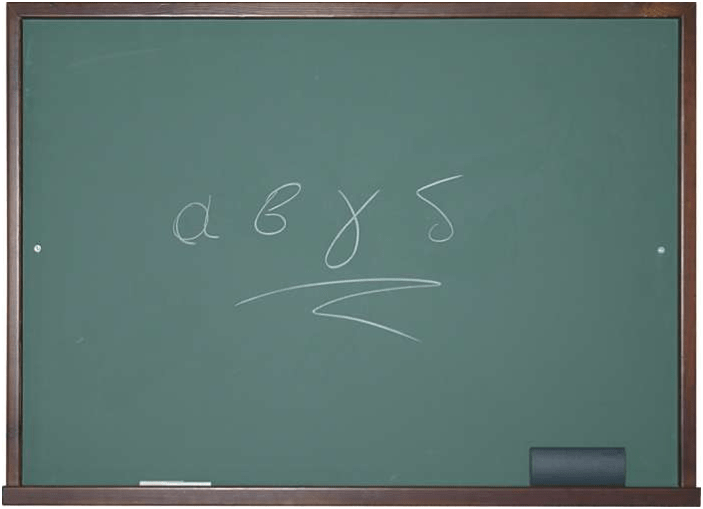 α β γ δ